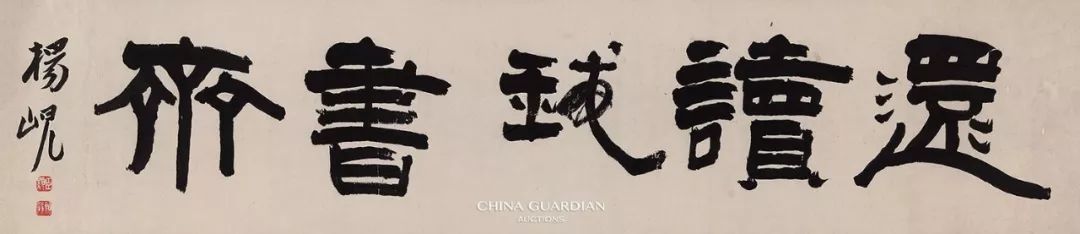 還讀我書齋
楊峴
CHINA GUARDIAN
AUCTIONS